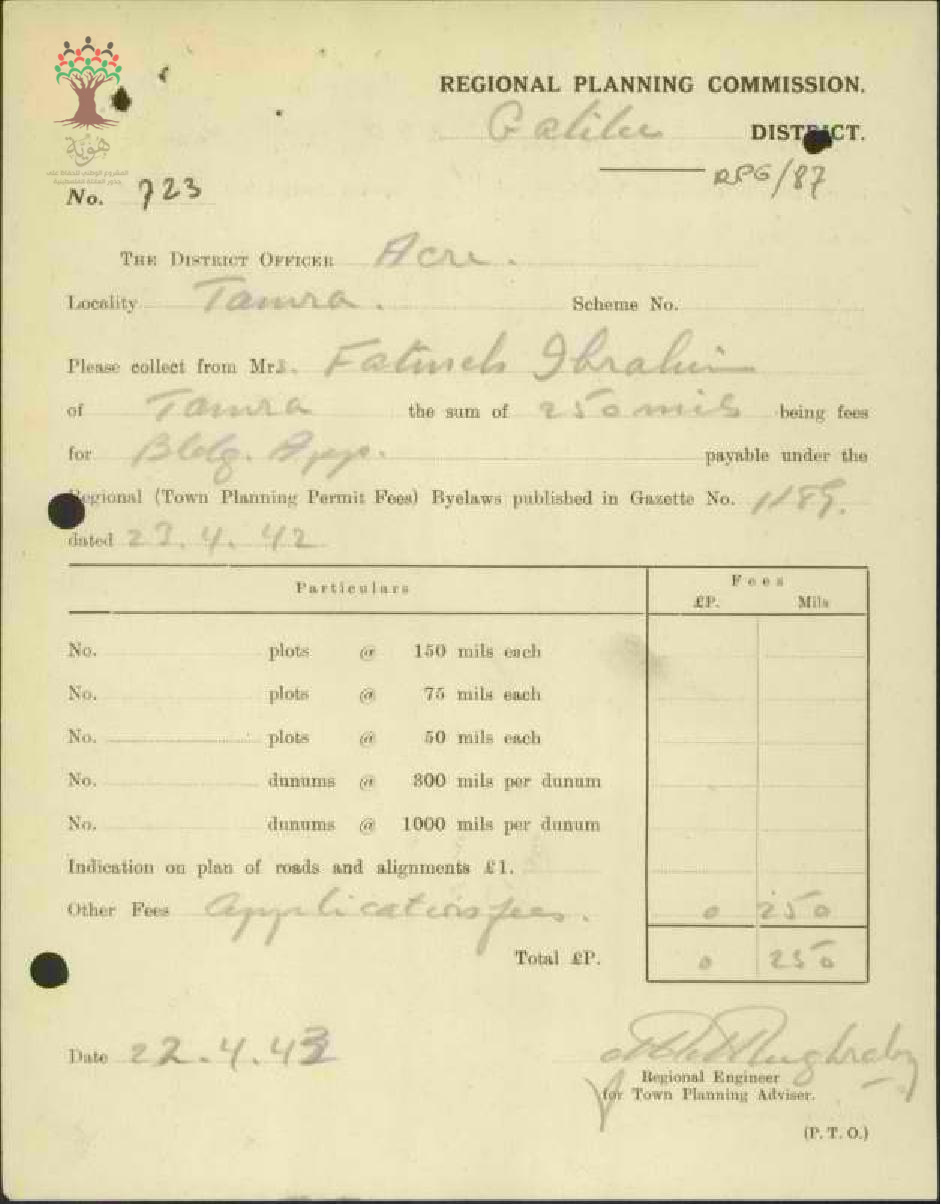 هوية
REGIONAL PLANNING COMMISSION.
Galilee DISTRICT.
RPG/87
No. 723
THE DISTRICT OFFICER Acre.
Locality Tamra. Scheme No.
Please collect from Mrs. Fatmeh Ibrahim
of Tamra the sum of 250 mils being fees
for Bldg. App. payable under the
Regional (Town Planning Permit Fees) Byelaws published in Gazette No. 1189.
dated 23.4.42
Particulars Fees
£P. Mils
No. plots @ 150 mils each
No. plots @ 75 mils each
No. plots @ 50 mils each
No. dunums @ 800 mils per dunum
No. dunums @ 1000 mils per dunum
Indication on plan of roads and alignments £1.
Other Fees Application fees. 0 250
Total £P. 0 250
Date 22.4.43
Regional Engineer
for Town Planning Adviser.
(P. T. O.)